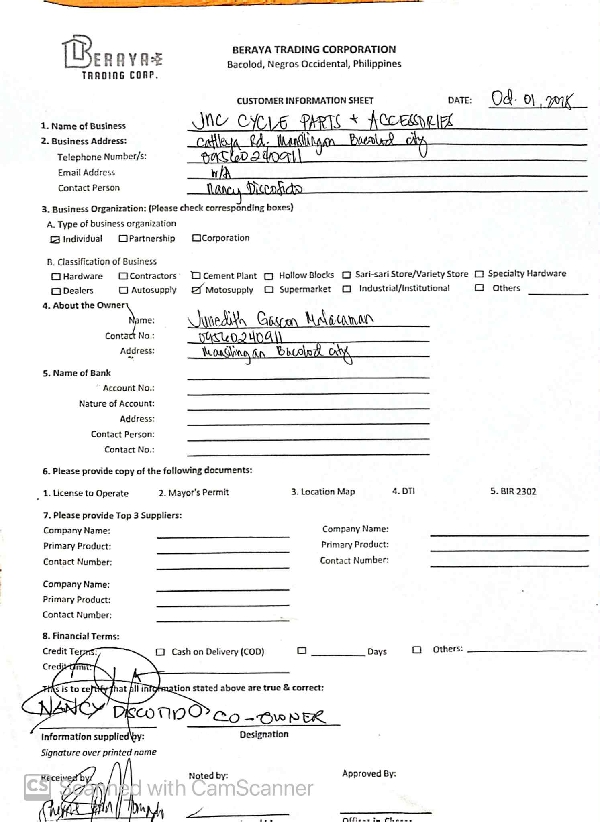 BERAYA
TRADING CORP.
BERAYA TRADING CORPORATION
Bacolod, Negros Occidental, Philippines
CUSTOMER INFORMATION SHEET DATE: Oct. 01, 2018
1. Name of Business JNC CYCLE PARTS + ACCESSORIES
2. Business Address: Cattleya Rd. Mansilingan Bacolod city
Telephone Number/s: 09560240911
Email Address N/A
Contact Person Nancy Discofido
3. Business Organization: (Please check corresponding boxes)
A. Type of business organization
☑ Individual ☐ Partnership ☐ Corporation
B. Classification of Business
☐ Hardware ☐ Contractors ☐ Cement Plant ☐ Hollow Blocks ☐ Sari-sari Store/Variety Store ☐ Specialty Hardware
☐ Dealers ☐ Autosupply ☑ Motosupply ☐ Supermarket ☐ Industrial/Institutional ☐ Others
4. About the Owner
Name: Junedith Gascon
Contact No.: 09560240911
Address: Mansilingan Bacolod city
5. Name of Bank
Account No.:
Nature of Account:
Address:
Contact Person:
Contact No.:
6. Please provide copy of the following documents:
1. License to Operate 2. Mayor's Permit 3. Location Map 4. DTI 5. BIR 2302
7. Please provide Top 3 Suppliers:
Company Name: Company Name:
Primary Product: Primary Product:
Contact Number: Contact Number:
Company Name:
Primary Product:
Contact Number:
8. Financial Terms:
Credit Terms: ☐ Cash on Delivery (COD) ☐ Days ☐ Others:
Credit Limit:
This is to certify that all information stated above are true & correct:
NANCY CO-OWNER
Information supplied by: Designation
Signature over printed name
Received by: Noted by: Approved By:
CS Scanned with CamScanner